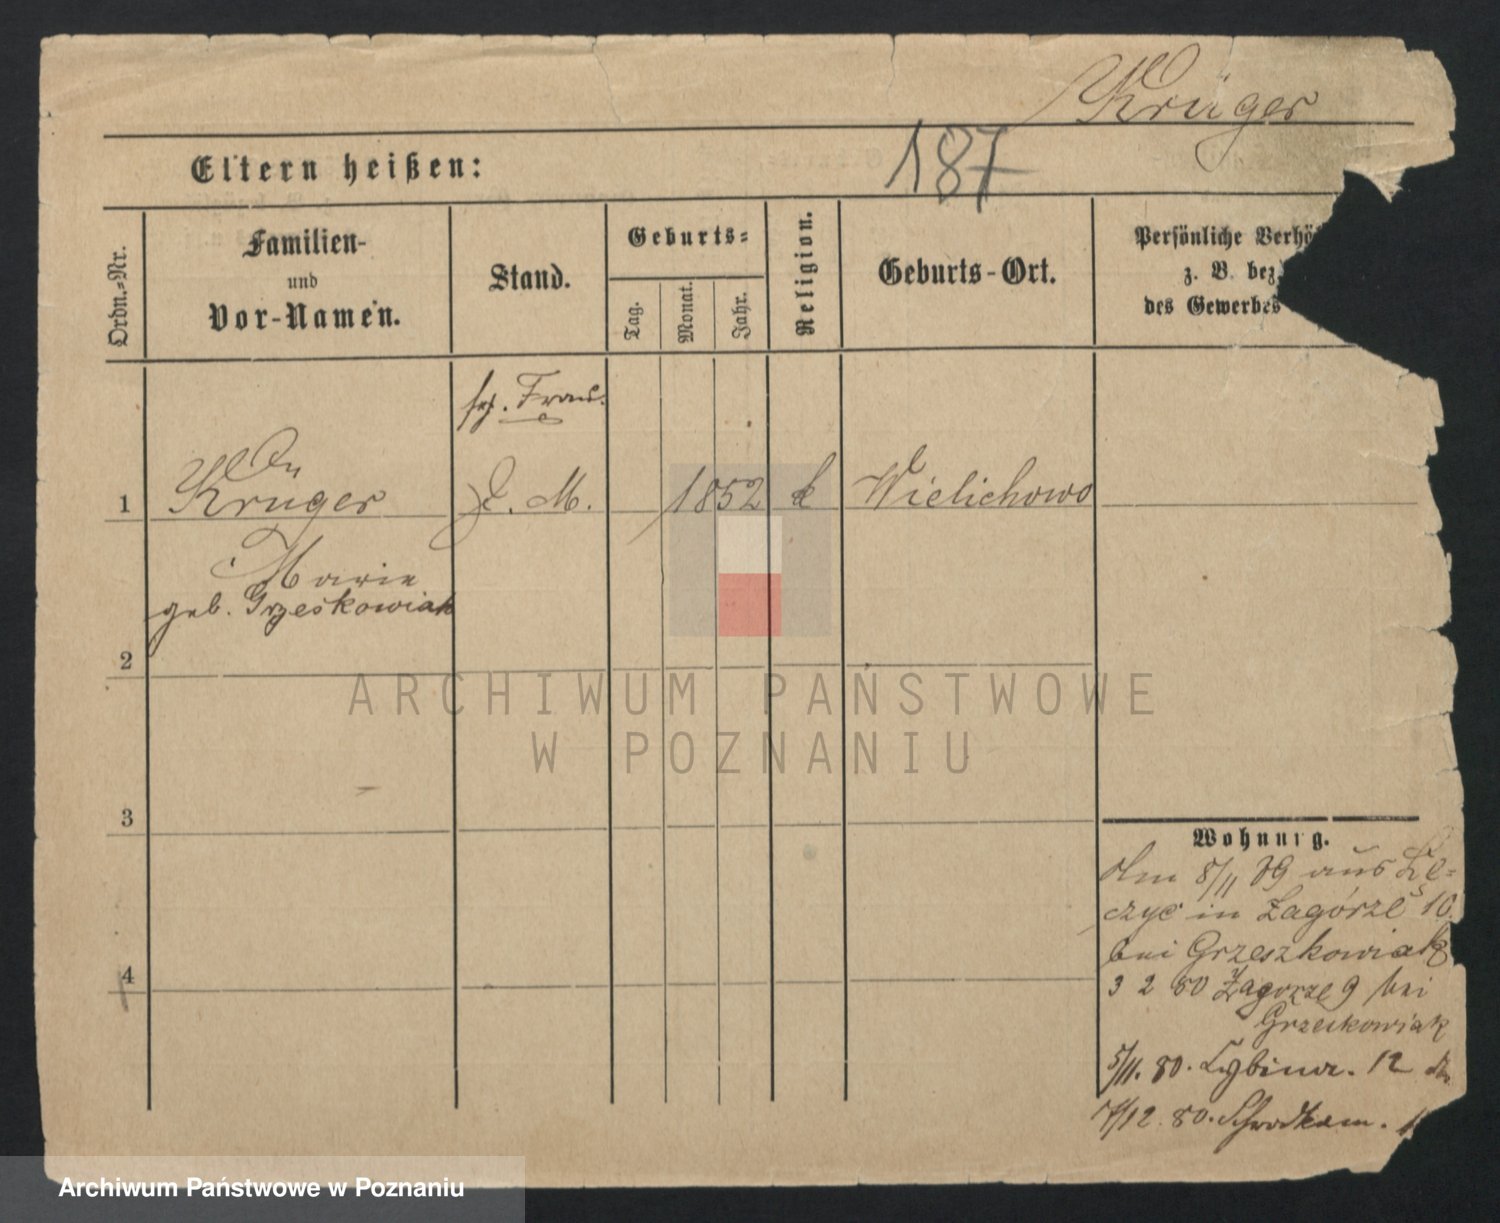 Krüger
187
Eltern heißen:
Ordn.-Nr.
Familien-
und
Vor-Namen.
Stand.
Geburts-
Tag.
Monat.
Jahr.
Religion.
Geburts-Ort.
Persönliche Verhä
z. B. bez.
des Gewerbes
Frau.
1 Krüger D. M. 1852 k Wielichowo
Marie
geb. Grzeskowiak
2
3
4
Wohnung.
8/11 79 aus Łę-
czyc in Zagórze 10
bei Grzeszkowiak
3 2 80 Zagorze 9 bei
Grzeskowiak
5/11. 80. Cybinar. 12
/12. 80. Schrodkam.
ARCHIWUM PAŃSTWOWE
W POZNANIU
Archiwum Państwowe w Poznaniu